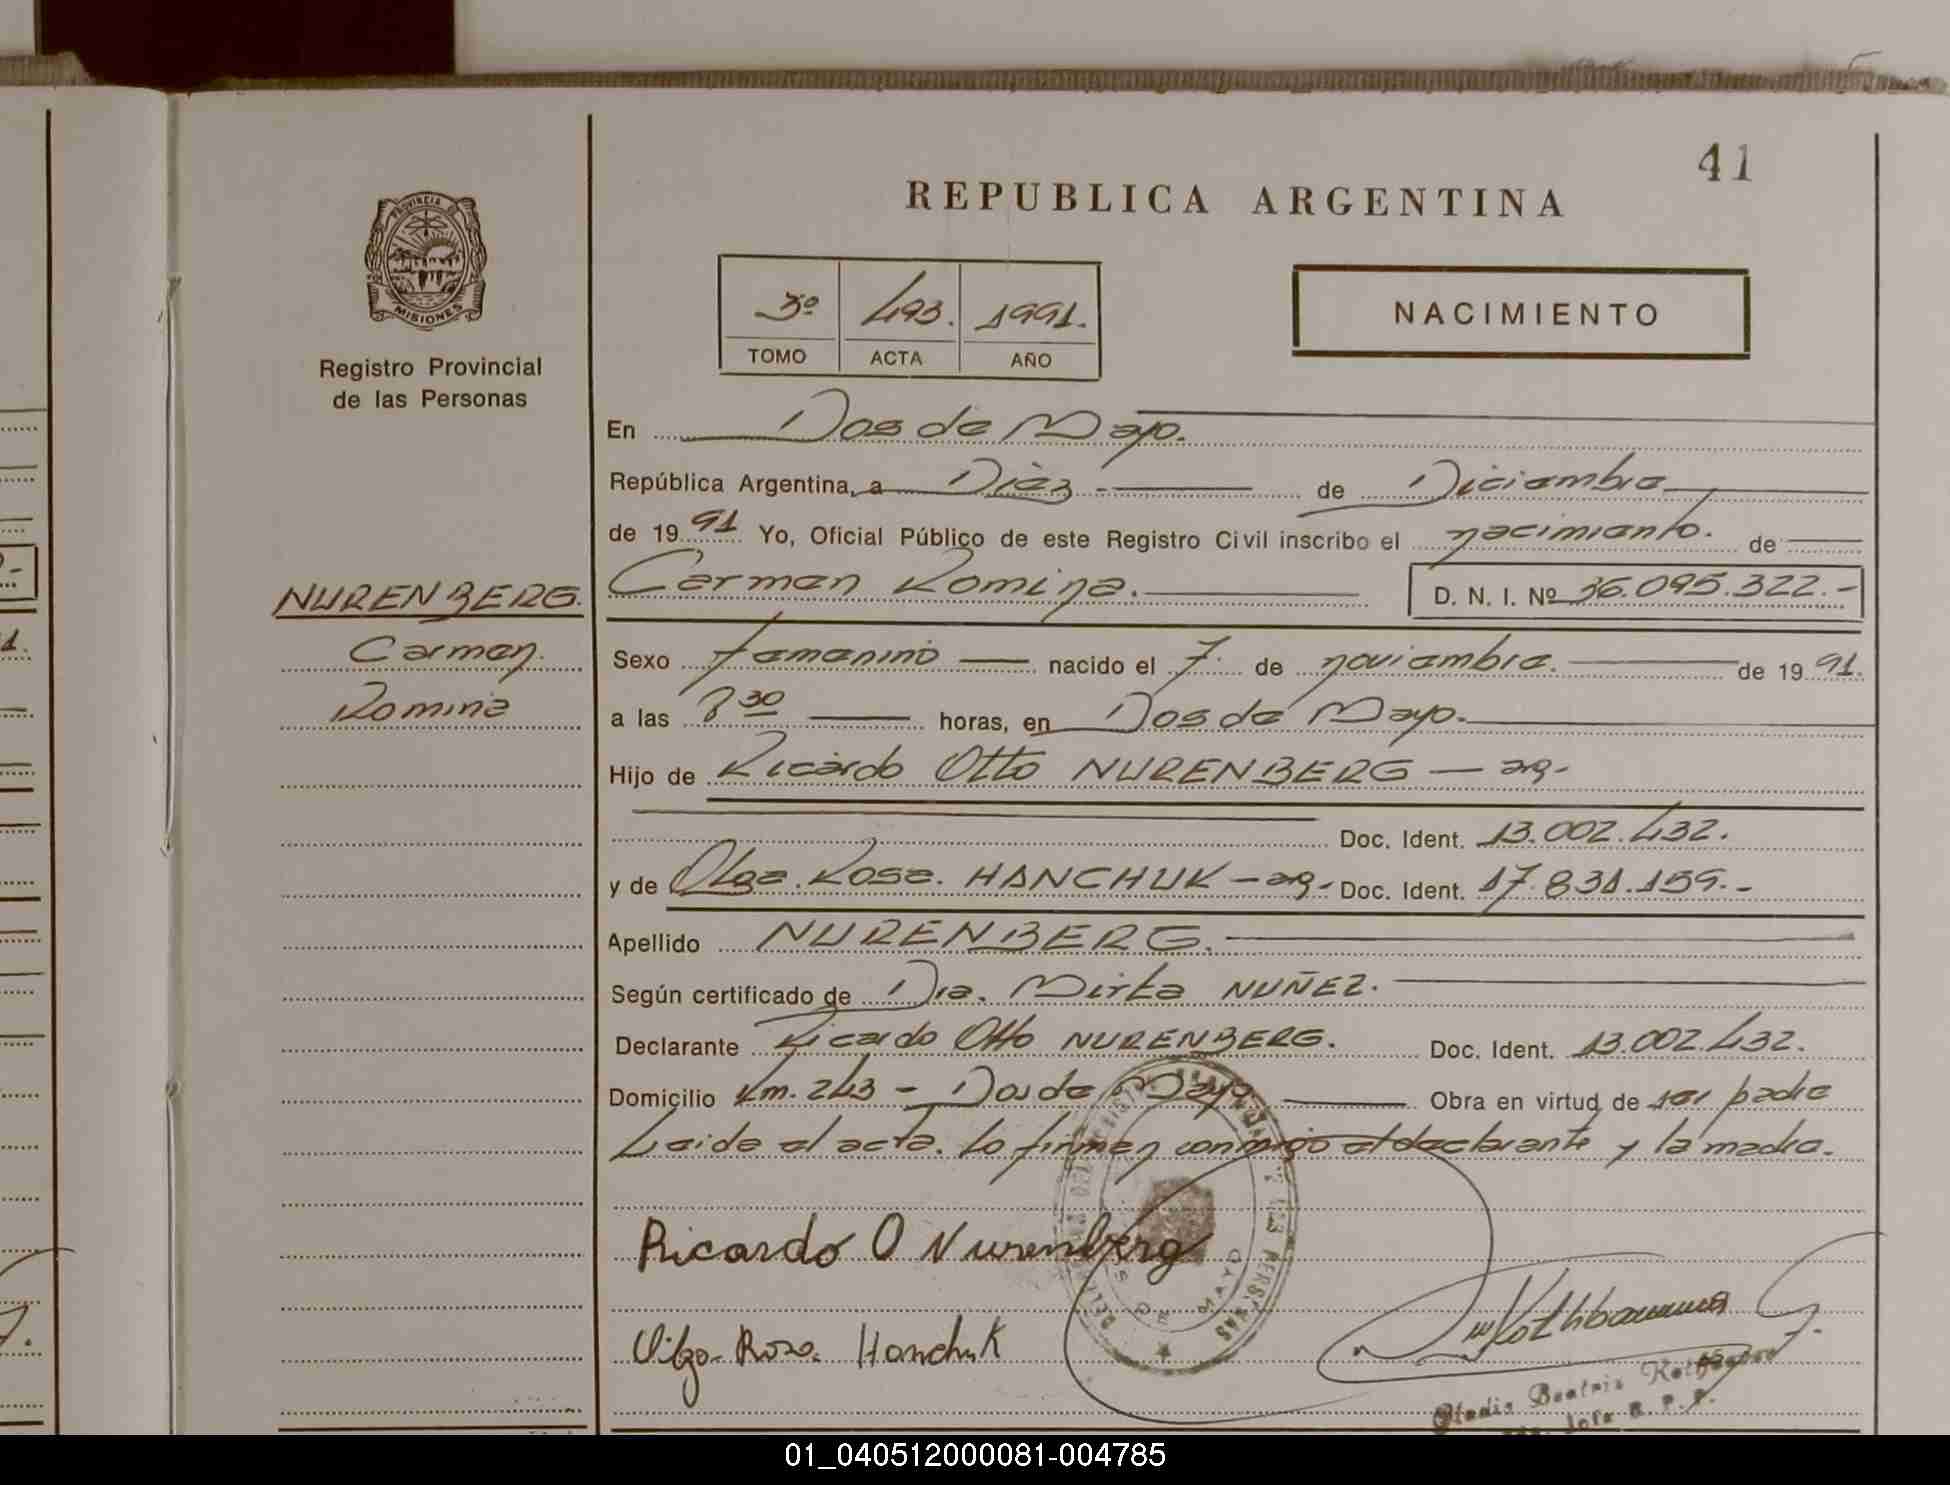 41
REPUBLICA ARGENTINA
PROVINCIA DE
MISIONES
Registro Provincial
de las Personas
3º 493. 1991.
TOMO ACTA AÑO
NACIMIENTO
En Dos de Mayo.
República Argentina, a Diez - de Diciembre
de 1991 Yo, Oficial Público de este Registro Civil inscribo el nacimiento. de
NURENBERG. Carmen Romina. D. N. I. Nº 36.095.322.-
Carmen Sexo femenino nacido el 7. de noviembre. de 1991.
Romina a las 8 30 horas, en Dos de Mayo.
Hijo de Ricardo Otto NURENBERG - arg-
Doc. Ident. 13.002.432.
y de Olga. Rosa. HANCHUK - arg- Doc. Ident. 17.831.159.-
Apellido NURENBERG.
Según certificado de Dra. Mirta NUÑEZ.
Declarante Ricardo Otto NURENBERG. Doc. Ident. 13.002.432.
Domicilio Km. 243 - Dos de Mayo Obra en virtud de ser padre
Leida el acta. Lo firman conmigo el declarante y la madre.
Ricardo O Nurenberg
Olga Rosa Hanchuk
DE MAYO
Gladis Beatriz
01_040512000081-004785